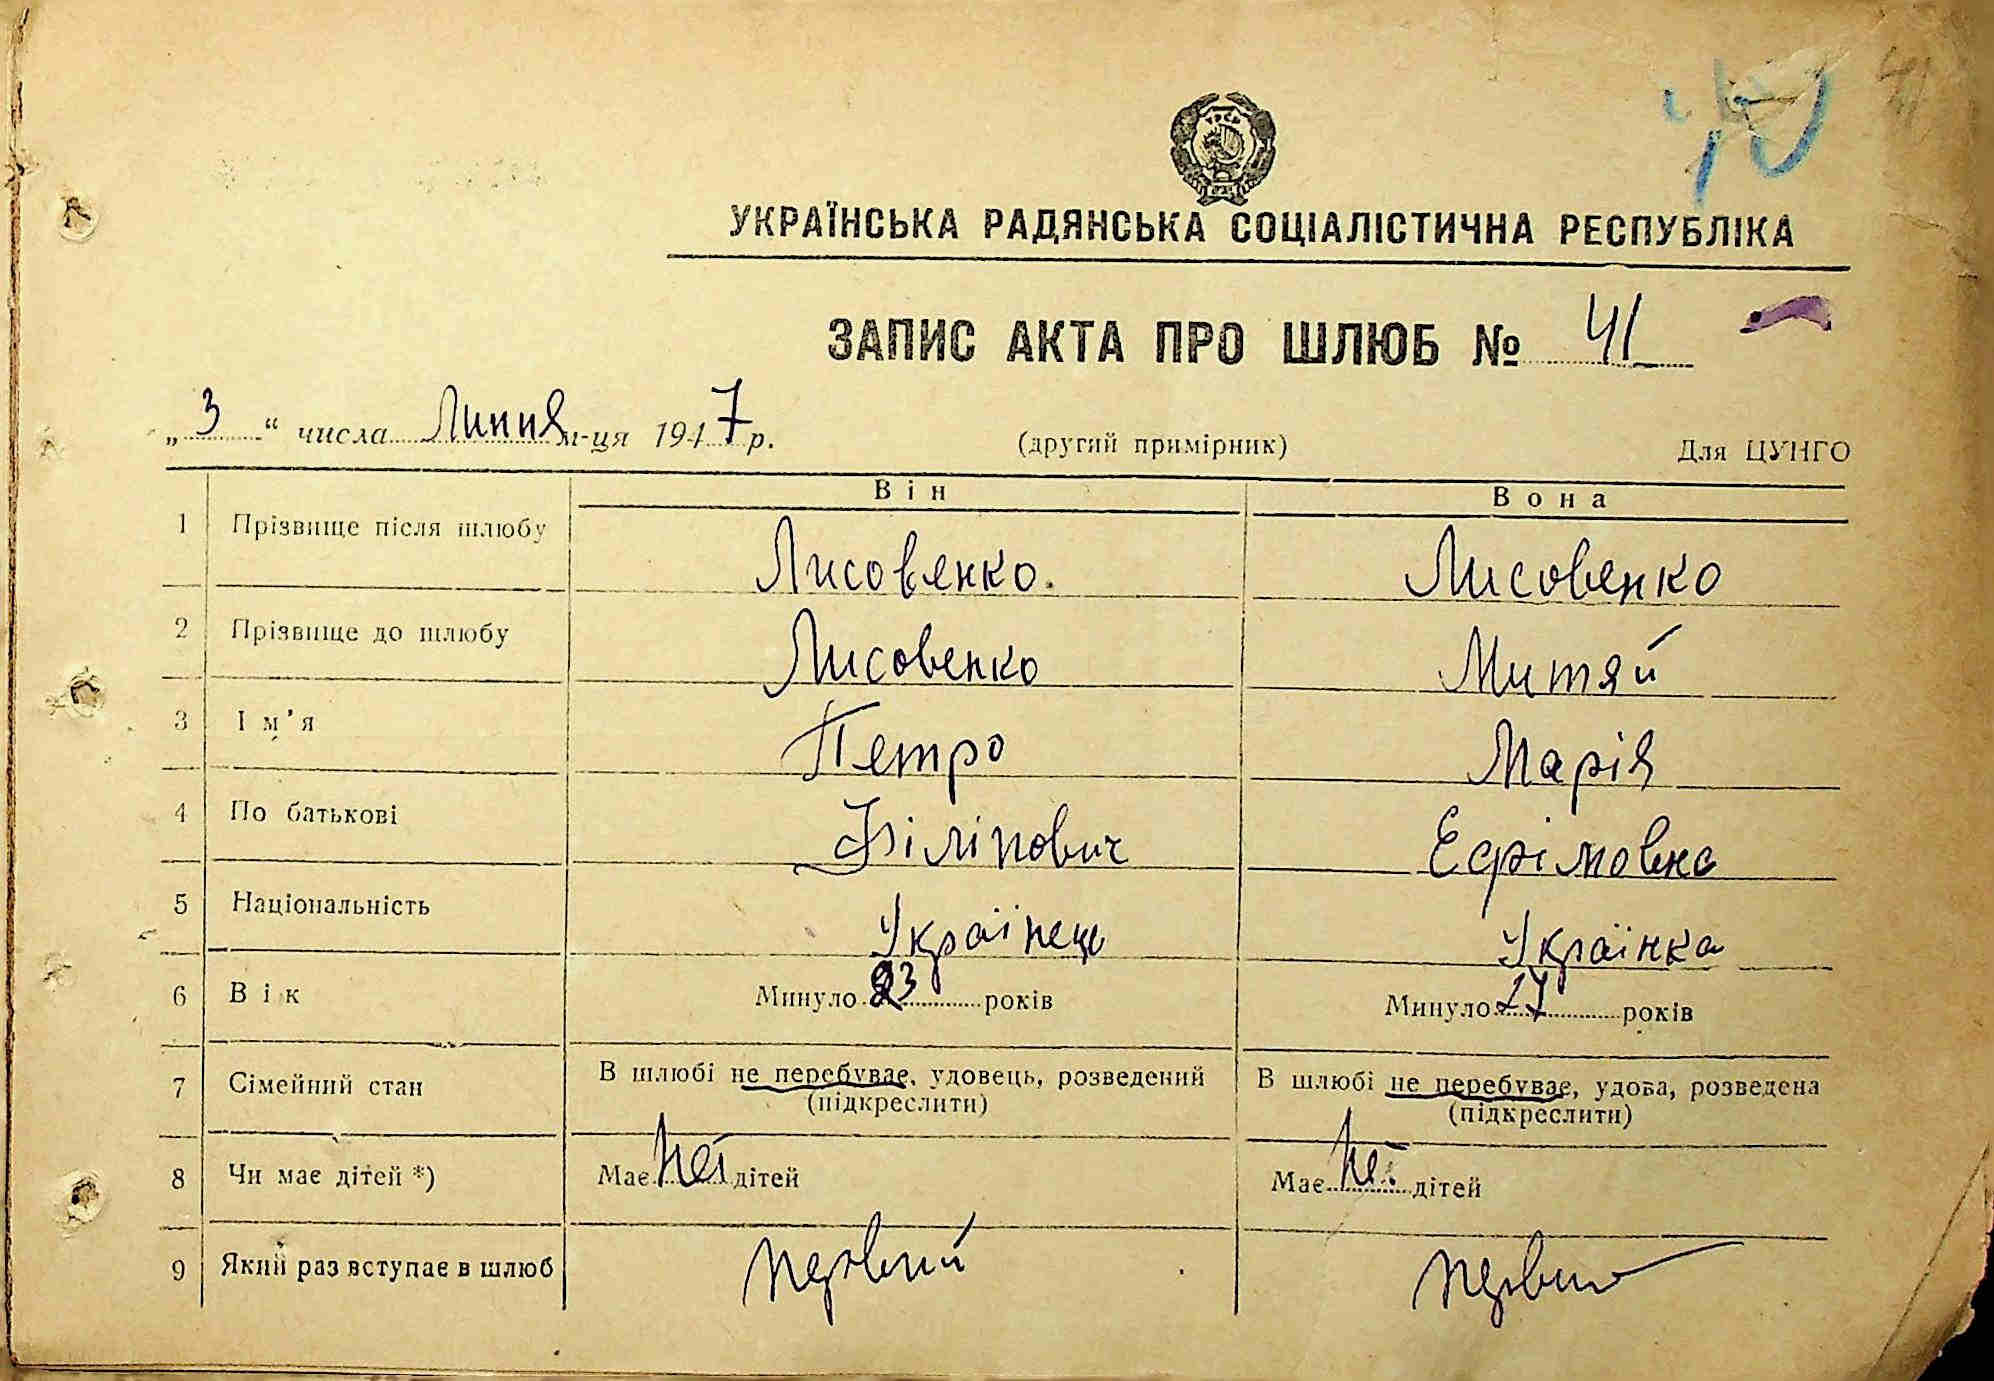 40
41
УРСР
УКРАЇНСЬКА РАДЯНСЬКА СОЦІАЛІСТИЧНА РЕСПУБЛІКА
ЗАПИС АКТА ПРО ШЛЮБ № 41
„3“ числа Липня м-ця 1947 р. (другий примірник) Для ЦУНГО
Він Вона
1 Прізвище після шлюбу Лисовенко. Лисовенко
2 Прізвище до шлюбу Лисовенко Митяй
3 Ім'я Петро Марія
4 По батькові Філіпович Ефімовна
5 Національність Українець Українка
6 Вік Минуло 23 років Минуло 27 років
7 Сімейний стан В шлюбі не перебуває, удовець, розведений В шлюбі не перебуває, удова, розведена
(підкреслити) (підкреслити)
8 Чи має дітей *) Має неї дітей Має неї дітей
9 Який раз вступає в шлюб первий